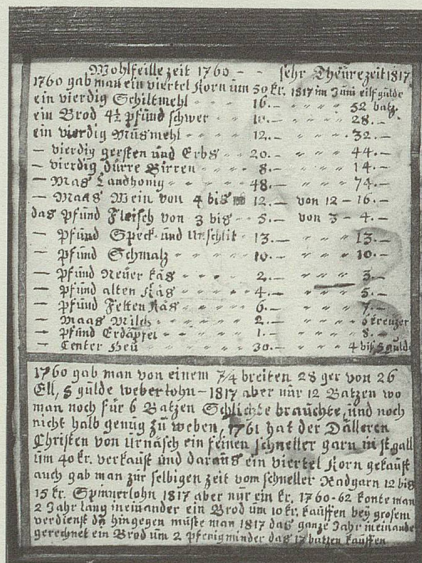 Wohlfeille zeit 1760 - - sehr Theüre zeit 1817
1760 gab man ein viertel Korn um 50 kr. 1817 im Juni eilf gülde
ein vierdig Schiltmehl - - 16. - - 52 batz.
ein Brod 4½ pfünd schwer - - 10. - - 28.-
ein vierdig Müsmehl - - 12. - - 32.-
- vierdig gersten und Erbs - 20.- - - 44.-
- vierdig dürre Birren - - 8.- - - 14.-
- Mas Landhonig - - 48.- - - 74.-
- Maas Wein von 4 bis 12.- von 12 - 16.-
das Pfünd Fleisch von 3 bis - 5.- von 3 - 4.-
- Pfünd Speck und Unschlit - 13.- - - 13.-
- Pfünd Schmalz - - 10.- - - 10.-
- Pfünd Neüer Käs - - 2.- - - 3.-
- Pfünd alten Käs - - 4.- - - 5.-
- Pfünd Fetten Käs - - 6.- - - 7.-
- Maas Milch - - 2.- - - 6 kreuzer
- Pfünd Erdäpfel - - 1.- - - 8.-
- Center Heü - - 30.- - - 4 bis 5 gülde
1760 gab man von einem 7/4 breiten 28 ger von 26
Ell, 5 gülde weberlohn - 1817 aber nür 12 Batzen wo
man noch für 6 Batzen Schlichte brauchte, und noch
nicht halb genüg zu weben, 1761 hat der Dälleren
Christen von Urnäsch ein feinen schneller garn in st. gall
üm 40 kr. verkauft und daraus ein viertel Korn gekauft
auch gab man zür selbigen zeit vom schneller Radgarn 12 bis
15 kr. Spinnerlohn 1817 aber nur ein kr. 1760-62 konte man
2 Jahr lang ineinander ein Brod um 10 kr. kauffen bey grosem
verdienst da hingegen müste man 1817 das ganze Jahr ineinander
gerechnet ein Brod um 2 pfenig minder das 17 batzen kauffen